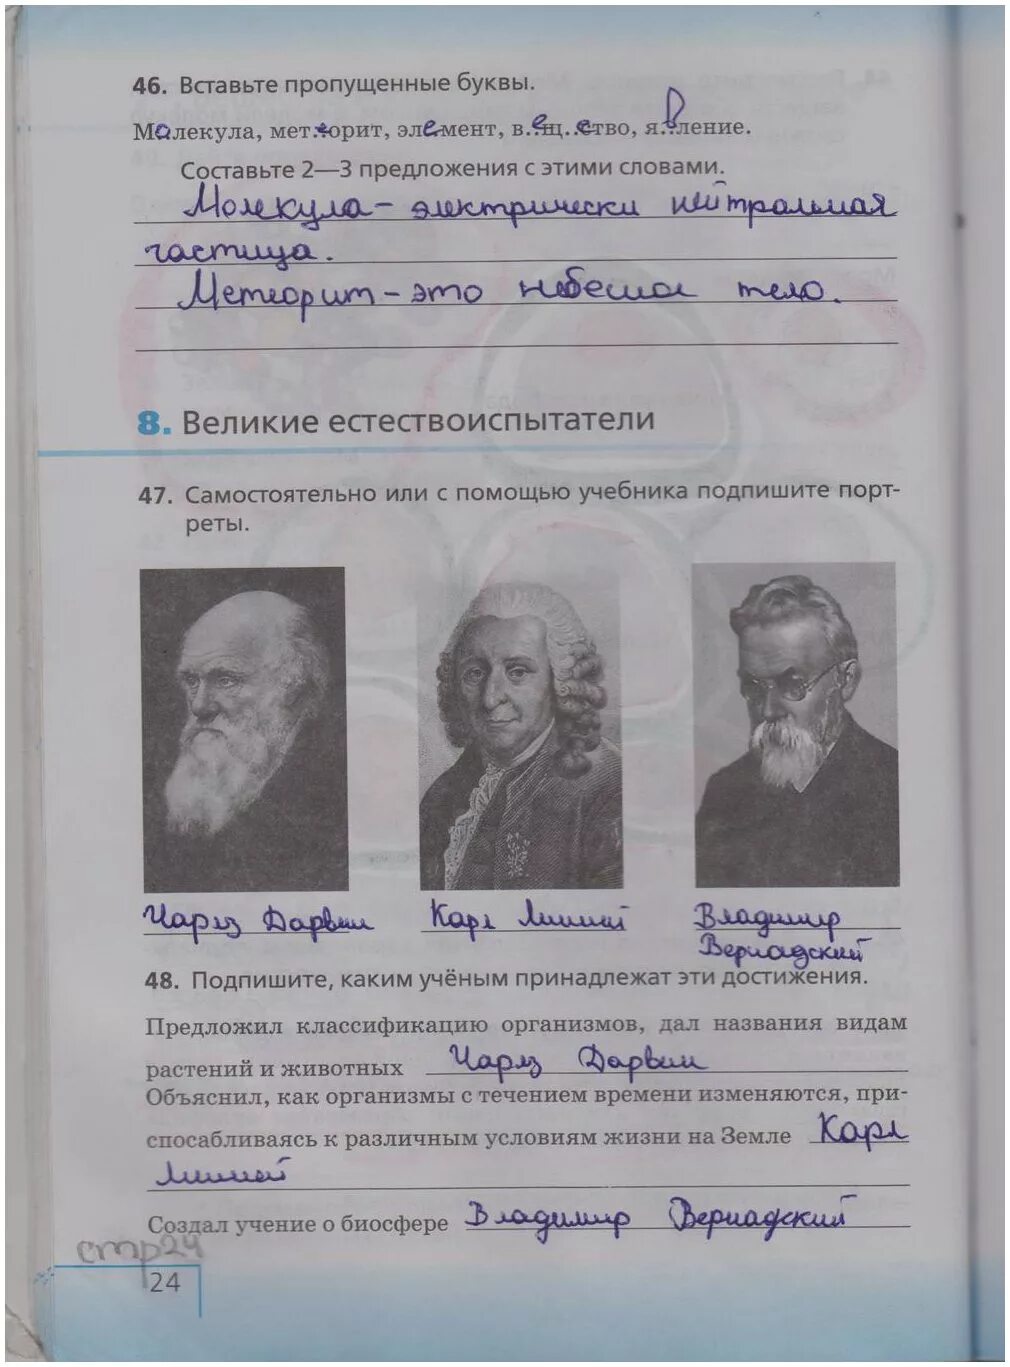 46. Вставьте пропущенные буквы.
Молекула, метеорит, элемент, вещество, явление.
Составьте 2—3 предложения с этими словами.
Молекула - электрически нейтральная
частица.
Метеорит - это небесное тело.
8. Великие естествоиспытатели
47. Самостоятельно или с помощью учебника подпишите порт-
реты.
Чарлз Дарвин Карл Линней Владимир
Вернадский
48. Подпишите, каким учёным принадлежат эти достижения.
Предложил классификацию организмов, дал названия видам
растений и животных Чарлз Дарвин
Объяснил, как организмы с течением времени изменяются, при-
спосабливаясь к различным условиям жизни на Земле Карл
Линней
Создал учение о биосфере Владимир Вернадский
стр 24
24